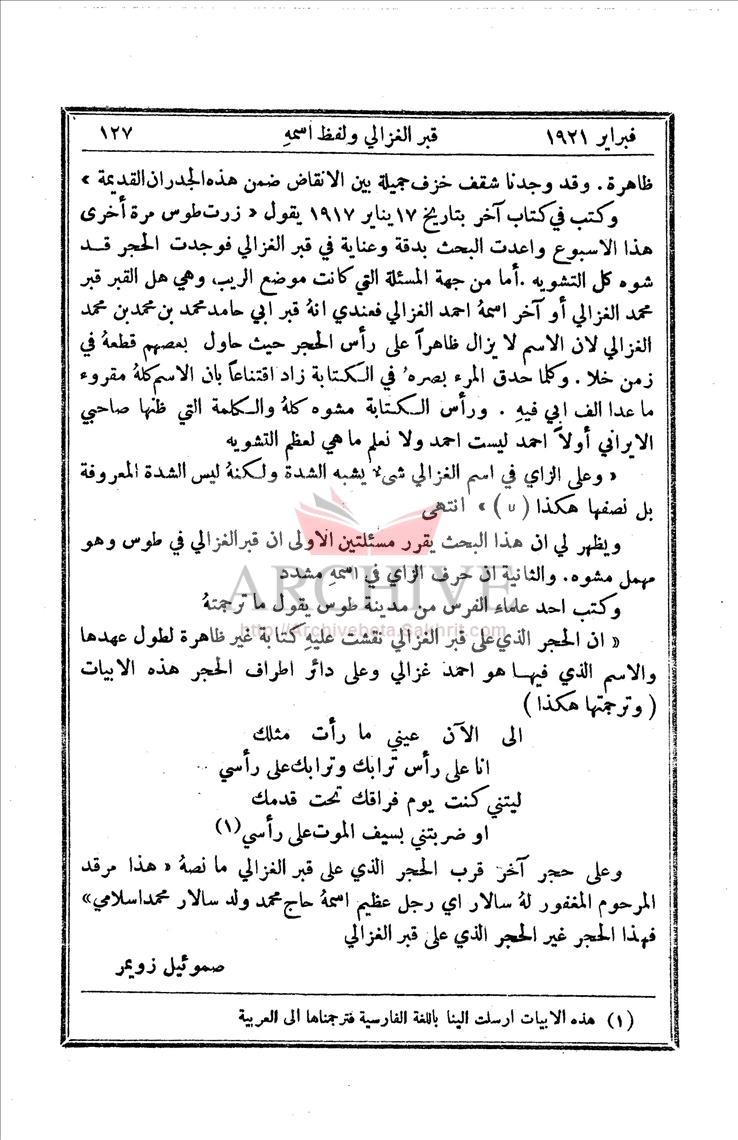 فبراير ١٩٢١ قبر الغزالي ولفظ اسمهِ ١٢٧
ظاهرة . وقد وجدنا شقف خزف جميلة بين الانقاض ضمن هذه الجدران القديمة »
وكتب في كتاب آخر بتاريخ ١٧ يناير ١٩١٧ يقول « زرت طوس مرة أخرى
هذا الاسبوع واعدت البحث بدقة وعناية في قبر الغزالي فوجدت الحجر قد
شوه كل التشويه . أما من جهة المسئلة التي كانت موضع الريب، وهي هل القبر قبر
محمد الغزالي أو آخر اسمهُ احمد الغزالي فعندي انهُ قبر ابي حامد محمد بن محمد بن محمد
الغزالي لان الاسم لا يزال ظاهراً على رأس الحجر حيث حاول بعصهم قطعهُ في
زمن خلا . وكلما حدق المرء بصرهُ في الكتابة زاد اقتناعاً بان الاسم كلهُ مقروء
ما عدا الف ابي فيهِ . ورأس الكتابة مشوه كلهُ والكلمة التي ظنها صاحبي
الايراني أولاً احمد ليست احمد ولا نعلم ما هي لعظم التشويه
« وعلى الزاي في اسم الغزالي شيء يشبه الشدة ولكنهُ ليس الشدة المعروفة
بل نصفها هكذا ( ں ) » انتهى
ويظهر لي ان هذا البحث يقرر مسئلتين الاولى ان قبر الغزالي في طوس وهو
مهمل مشوه . والثانية ان حرف الزاي في اسمهِ مشدد
ARCHIVE
وكتب احد علماء الفرس من مدينة طوس يقول ما ترجمتهُ
http://Archivebeta.Sakhrit.com
« ان الحجر الذي على قبر الغزالي نقشت عليهِ كتابة غير ظاهرة لطول عهدها
والاسم الذي فيها هو احمد غزالي وعلى دائر اطراف الحجر هذه الابيات
( وترجمتها هكذا )
الى الآن عيني ما رأت مثلك
انا على رأس ترابك وترابك على رأسي
ليتني كنت يوم فراقك تحت قدمك
او ضربتني بسيف الموت على رأسي (١)
وعلى حجر آخر قرب الحجر الذي على قبر الغزالي ما نصهُ « هذا مرقد
المرحوم المغفور لهُ سالار اي رجل عظيم اسمهُ حاج محمد ولد سالار محمد اسلامي »
فهذا الحجر غير الحجر الذي على قبر الغزالي
صموئيل زويمر
(١) هذه الابيات ارسلت الينا باللغة الفارسية فترجمناها الى العربية